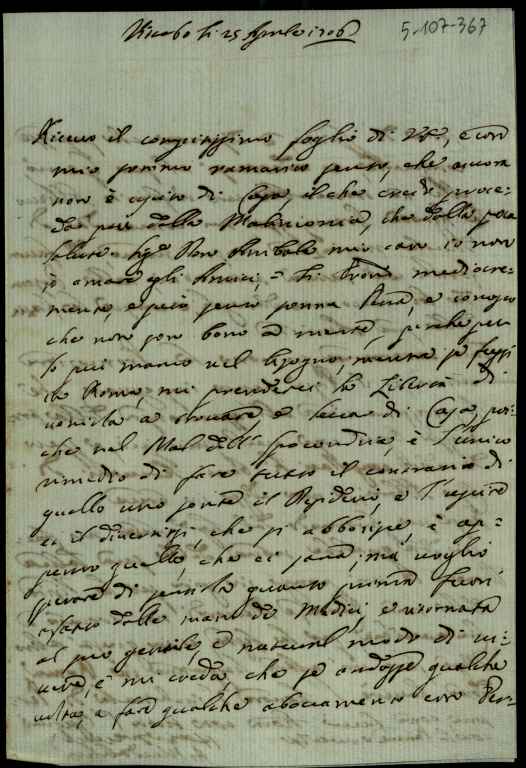 5-107-367
Viterbo li 25 Aprile 1706
Ricevo il compitissimo foglio di VS., e con
mio sommo ramarico sento, che ancora
non è uscito di Casa, il che credo proce-
da più dalla Malinconia, che dalla poca
salute. Sig.r Don Anibale mio caro io non
sò amare gli Amici,
mente, e però sento somma Pena, e conosco
che non son bono à niente, perche per
lo più manco nel bisogno, mentre se fussi
in Roma, mi prenderei la Libertà di
venirla à trovare, e levar di Casa, poi-
che nel Mal dell' Ipocondria, è l'unico
rimedio di fare tutto il contrario di
quello uno sente il Desiderio, e l'uscire
et il divertirsi, che si abborisce, è ap-
punto quello, che ci sana, mà voglio
sperare di sentirla quanto prima fuori
affatto dalle mani de Medici, e ritornata
al suo gentile, e natural modo di vi-
vere, e mi creda, che se andasse qualche
volta, a fare qualche abocamento con